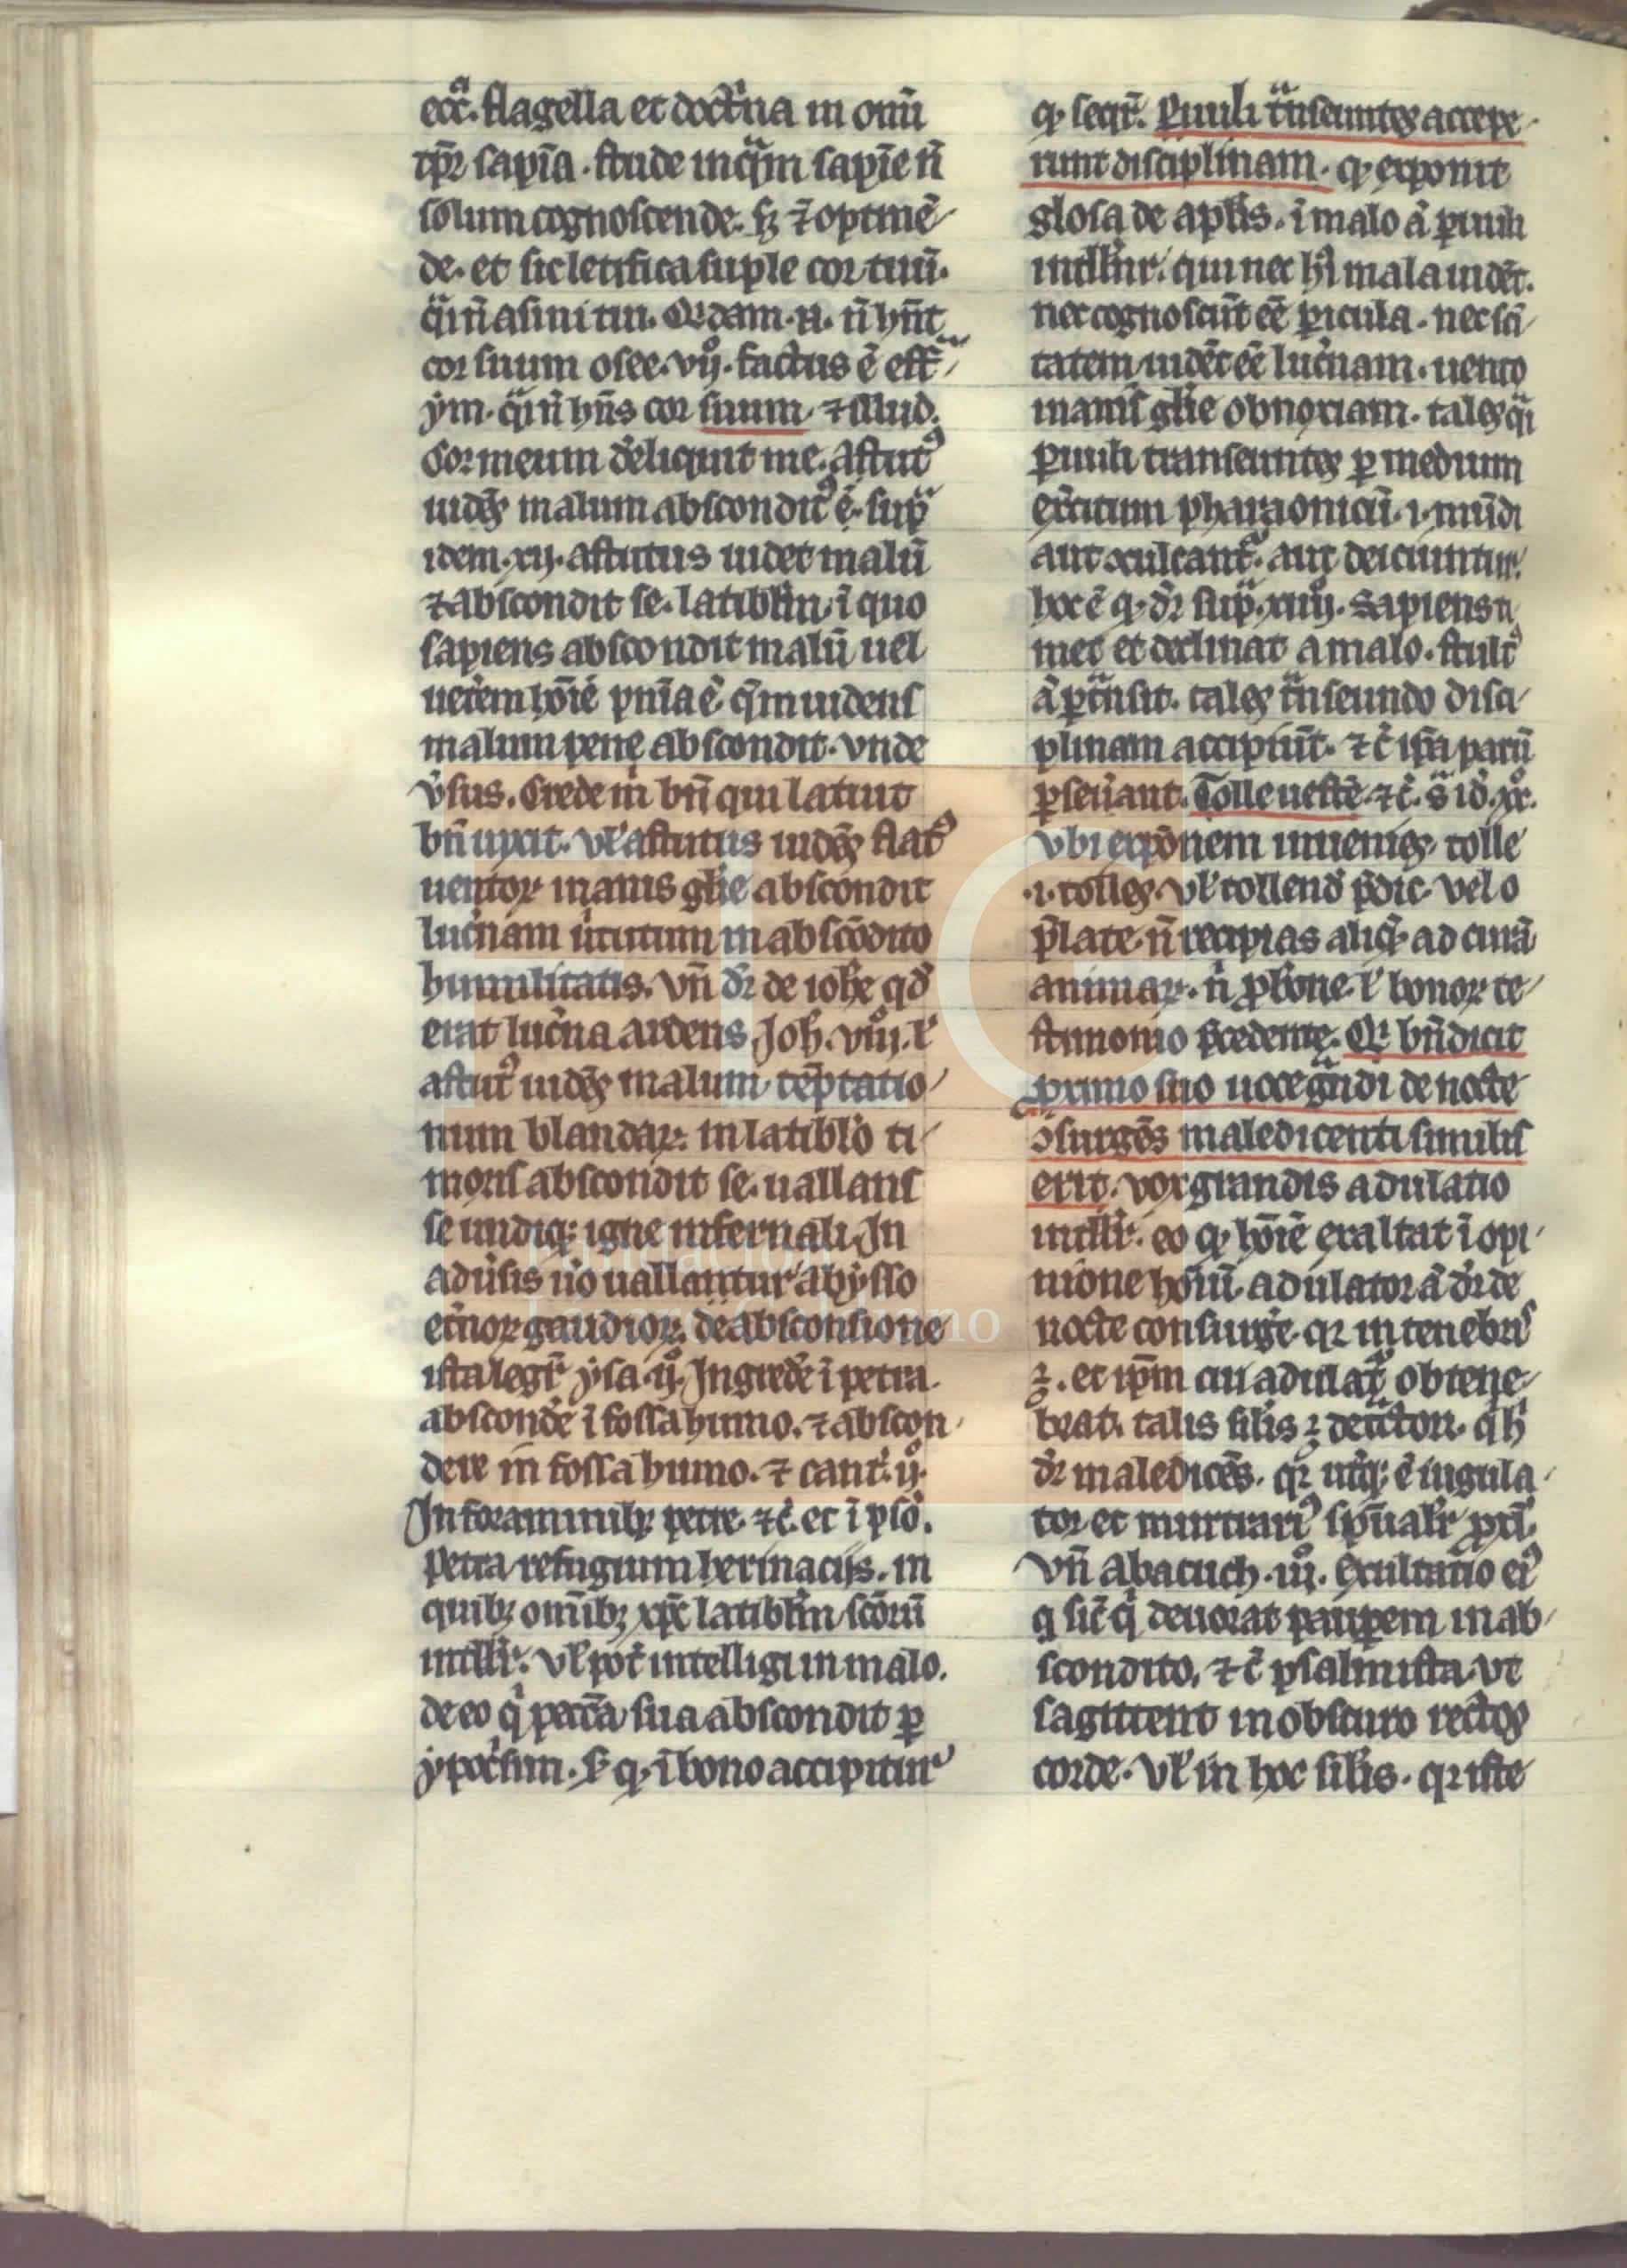 ecc̄. flagella et doctͥna in om̄i
tp̄r sapīa. stude inqͣm sapīe n̄
solum cognoscende. sꝫ ⁊ optinē
de. et sic letifica suple cor tuū.
qͣi n̄ asini tui. Qͥdam .n. n̄ hn̄t
cor suum osee. vij. factus ē effͣ
ym. qͣi n̄ hn̄s cor suum. ⁊ illud.
Cor meum dͤliquit me. astutꝰ
uidēs malum abscondit ē. supͣ
idem. xij. astutus uidet malū
⁊ abscondit se. latibl̄m. ī quo
sapiens abscondit malū uel
uet̓em hōīē pn̄ia ē. q̄m uidens
malum pene abscondit. vnde
v̓sus. Crede m̄ bn̄ qui latuit
bn̄ uixit. vl̓ astutus uidēs flatꝰ
uentoꝝ inanis gl̄ie abscondit
luc̓nam u̓tutum in abscōdito
humilitatis. vn̄ dr̄ de ioh̄e qd̓
erat luc̓na ardens Joh. viij. l̓
astutꝰ uidēs malum tēptatio
num blandaꝝ. in latibl̓o ti
moris abscondit se. uallans
se undiqꝫ igne infernali. In
adu̓sis u̓o uallantur abysso
et̓noꝝ gaudioꝝ. de absconsione
ista legr̄ ysa. ij. Ingredͤ ī petra.
abscondͤ ī fossa humo. ⁊ abscon
dere in fossa humo. ⁊ cant̓. ij.
In foraminibꝫ petre ⁊c̄. et ī pso.
petra refugium herinacijs. in
quibꝫ om̄ibꝫ xp̄c latibl̄m scōrū
intelli r̄. vl̓ pot̄ intelligi in malo.
de eo qͥ pecc̄a sua abscondit ꝑ
ypoc̓sim. sꝫ qꝫ ī bono accipitur
qꝫ seqr̄. Ꝑuuli tͣnseuntes accepe
runt disciplinam. qꝫ exponit
glosa de apl̄is. ī malo aͥ ꝑuuli
intelln̄r. qui nec hͥ mala uidēt.
nec cognoscūt eē ꝑicula. nec sci
tatem uidēt eē luc̓nam. uento
inanis gl̄ie obnoxiam. tales qͣi
ꝑuuli transeuntes ꝑ medium
ex̓citum pharaonicū .i. mūdi
aut ꝯculcant̓. aut deiciuntur.
hoc ē qꝫ dr̄ supͣ. xiiij. Sapiens ti
met et declinat a malo. stultꝰ
aͥ ꝑtͣnsit. tales tͣnseundo disci
plinam accipiūt. ⁊ c̄ ip̄a parū
ꝑseu̓ant. Tolle uestē ⁊c̄. sͣ id̓. xx.
vbi expōnem inuenies. tolle
.i. tolles. vl̓ tollend̓ p̄dic. vel o
p̄late. n̄ recipias aliqꝫ ad curā
animaꝝ. n̄ ꝓbōne. l̓ bonoꝝ te
stimonio p̄cedente. Qͥ bn̄dicit
ꝓximo suo uoce gͣndi de nocte
ꝯsurgēs maledicenti similis
erit. vox grandis adulatio
intelli r̄. eo qꝫ hōīē exaltat ī opi
nione hoīū. adulator aͥ dr̄ de
nocte consurge. qꝛ in tenebris
⁊. et ip̄m cui adulat̓. obtene
brat. talis sil̄is ⁊ detͣctori. qͥ hͥ
dr̄ maledicēs. qꝛ ut̓qꝫ ē iugula
tor et murtrariꝰ sp̄ualr̄ ꝓxī.
Vn̄ Abacuch. iij. Exultatio eiꝰ
qͥ sic̄ qͥ deuorat paupem in ab
scondito. ⁊ c̄ psalmista. vt
sagittent in obscuro rectos
corde. Vl̓ in hoc sil̄is. qꝛ iste